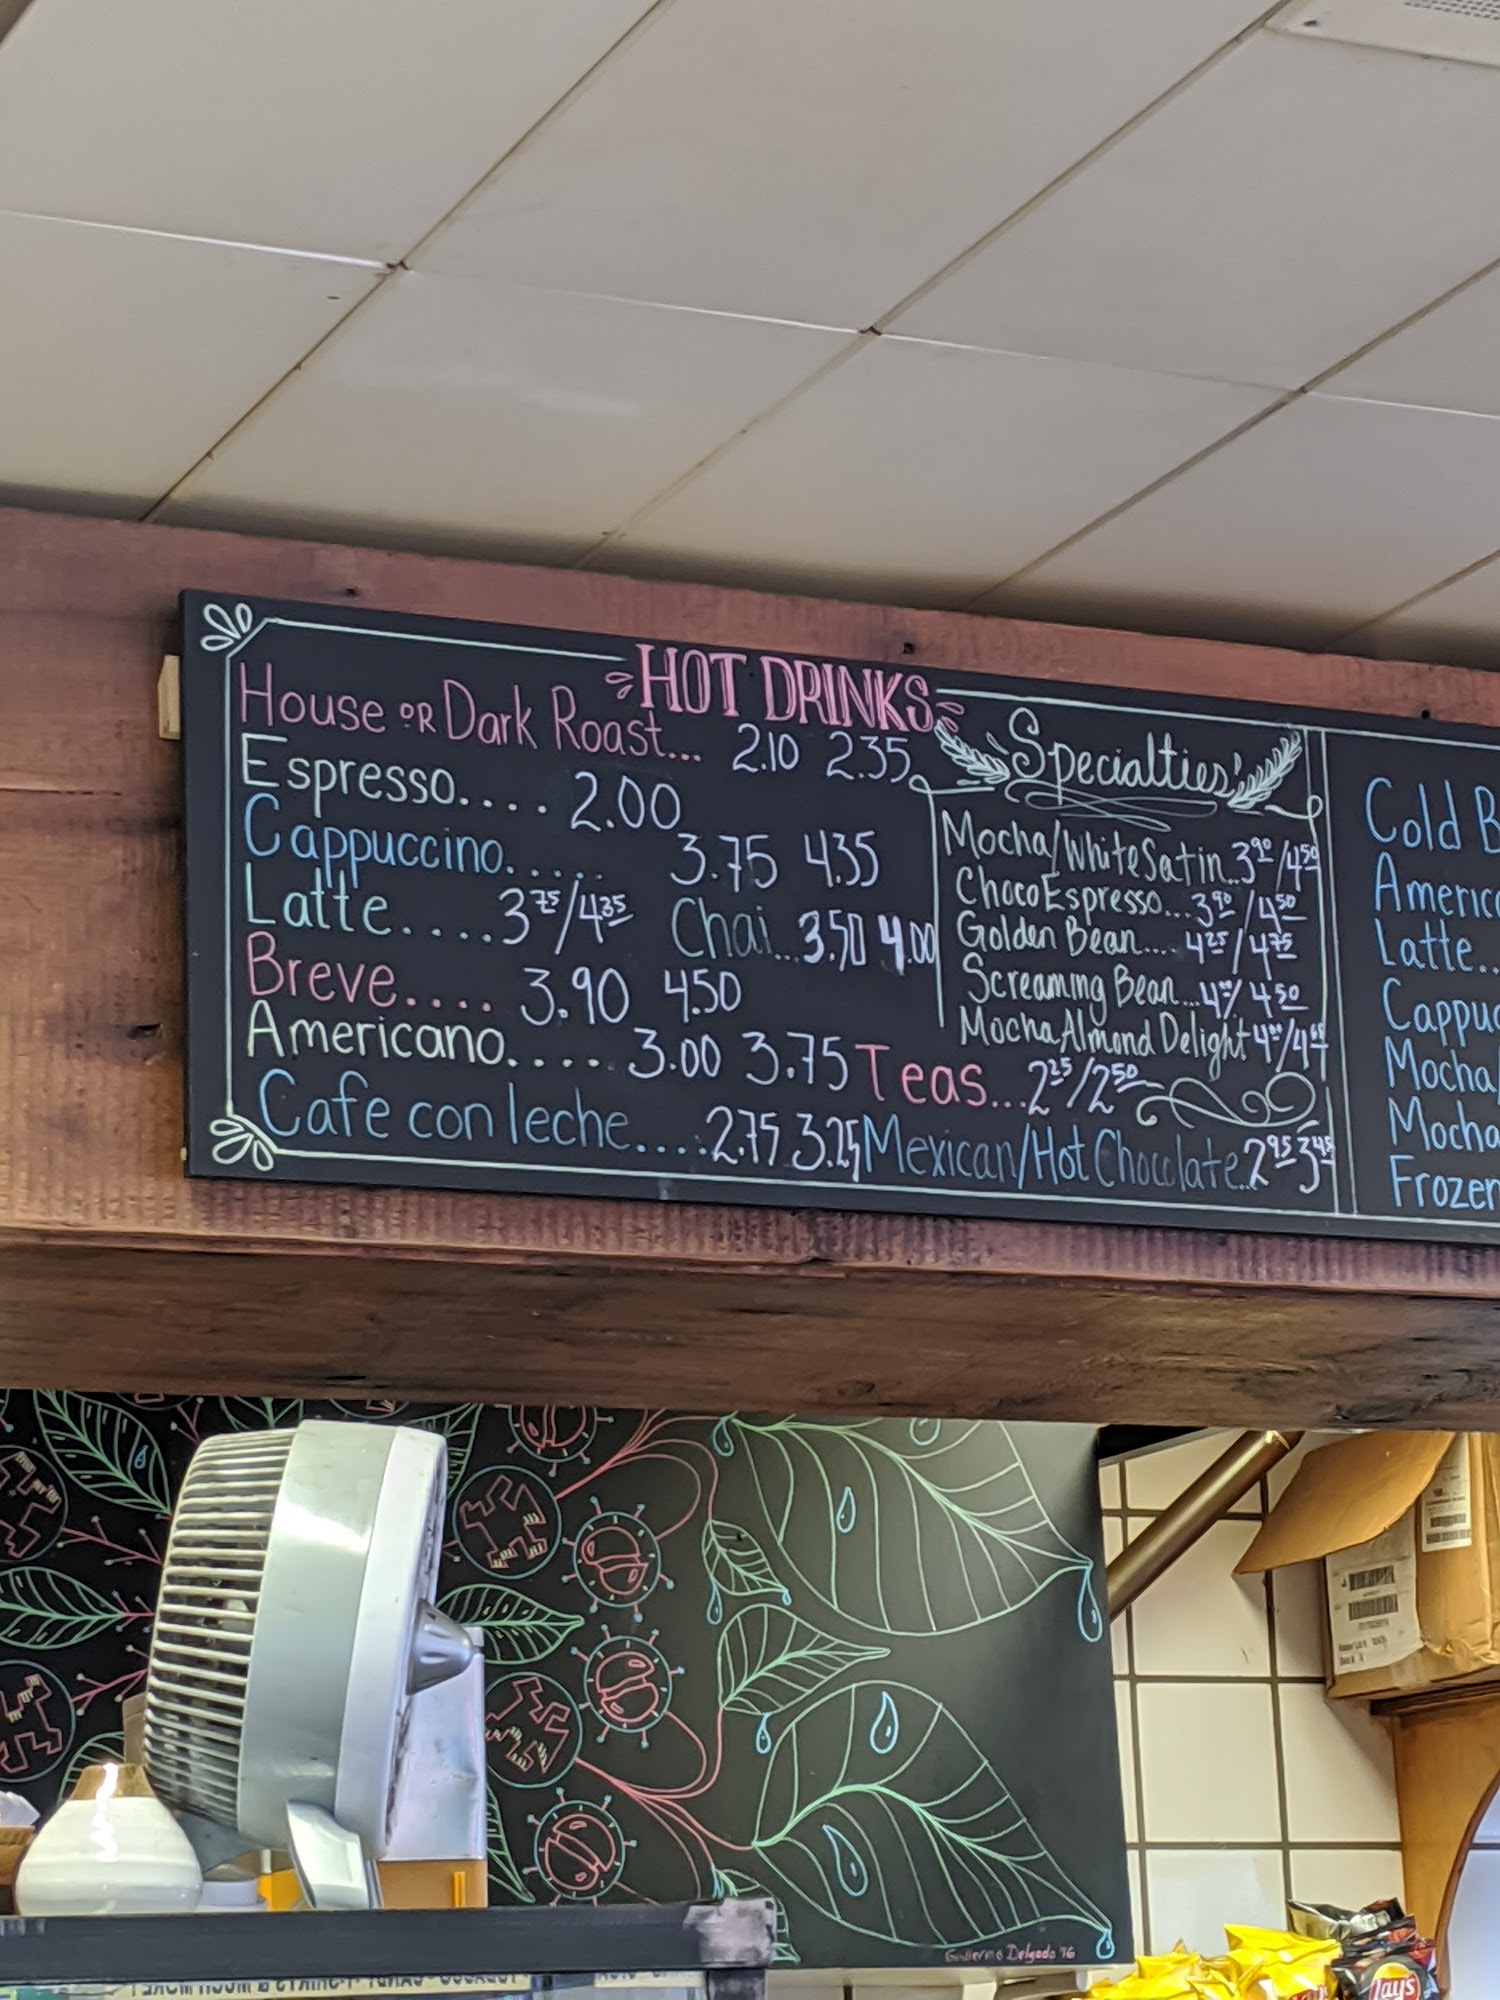 HOT DRINKS
House OR Dark Roast... 2.10 2.35
Espresso.... 2.00
Cappuccino..... 3.75 4.35
Latte.... 3.75/4.35 Chai... 3.50 4.00
Breve.... 3.90 4.50
Americano..... 3.00 3.75
Cafe con leche.... 2.75 3.25
Specialties
Mocha/White Satin.. 3.90/4.50
Choco Espresso... 3.90/4.50
Golden Bean.... 4.25/4.75
Screaming Bean... 4.00/4.50
Mocha Almond Delight 4.00/
Teas... 2.25/2.50
Mexican/Hot Chocolate... 2.95 3.45
Cold B
America
Latte..
Cappuc
Mocha/
Mocha
Frozen
Guillermo Delgado '16
Lay's